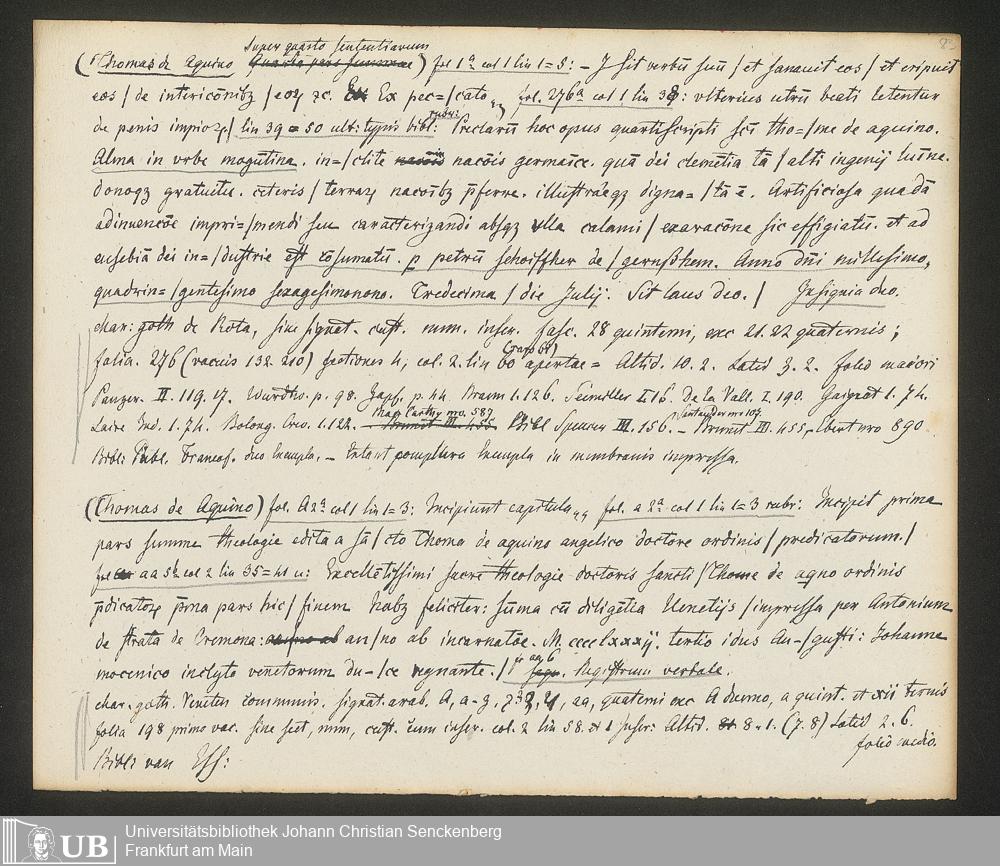 super quarto sententiarum
(Thomas de Aquino Quarta pars summae) fol 1ª col 1 lin 1=8: – J Sit verbū suū / et sanauit eos / et eripuit
eos / de intericōnibz / eoꝝ ⁊c. Ex pec=/cato „ fol. 276ª col 1 lin 38: vlterius utrū beati letentur
de penis impioꝝ / lin 39=50 ult: typis bibl: rubr: Preclarū hoc opus quarti scripti scī tho=/me de aquino.
Alma in vrbe mogūtina. in=/clite nacōis germaīce. quā dei clemētia tā / alti ingenij lūīne.
donoqz gratuitu. ceteris / terraꝝ nacoībz p̄ferre. illustráeqz digna=/tā ē. Artificiosa quadā
adinuencōe impri=/mendi seu caracterizandi absqz vlla calami / exaracōne sic effigiatū. et ad
eusebiā dei in=/dustrie est cōsumatū. p petrū schoiffher de / gernsshem. Anno dñi millesimo,
quadrin=/gentesimo sexagesimonono. Tredecima / die Julij. Sit laus deo. / Insignia duo.
char: goth de Rota, sine signat. cust. num. inscr. fasc. 28 quinterni, exc 21. 22 quaternis;
folia. 276 (vacuis 132. 210) sectiones 4, col. 2. lin 60 (raro 61) apertae = Altid. 10. 2. Latid 3. 2. folio maiori
Panzer. II. 119. 17. Wurdtw. p. 98. Zapf. p. 44. Braun 1. 126. Seemiller I 16. De la Vall. I. 190. Gaignat 1. 74.
Laire Ind. 1. 74. Bolong. Crev. 1. 122. Mac Carthy nro. 587 Brunet III. 455 Bibl Spencer III. 156. – Santander nro 107. Brunet III. 455, Ebert nro 890
Bibl: Publ. Francof. duo Exempla, – Extant complura Exempla in membranis impressa.
(Thomas de Aquino) fol. A2ª col 1 lin 1=3: Incipiunt capitula „ fol. a 2ª col 1 lin 1=3 rubr: Incipit prima
pars summe theologie edita a sā/cto Thoma de aquino angelico doctore ordinis / predicatorum. /
fol aa 5b col 2 lin 35=41 u: Excellētissimi sacre theologie doctoris sancti / Thome de aqno ordinis
p̄dicatoꝝ p̄ma pars hic / finem habz feliciter: sūma cū diligētia Uenetijs / impressa per Antonium
de strata de Cremona: an/no ab incarnatōe. M. cccclxxxij. tertio idus Au-/gusti: Johanne
mocenico inclyto venetorum du-/ce regnante. / fo aa 6 sequ. Registrum verbale.
char. goth. Venetus communis. signat. arab. A, a-z, aa, quaterni exc A duerno, a quint. et xii ternis
folia 198 primo vac. sine sect, num, cust. cum inscr. col. 2 lin 58. et 1 inscr: Altid. 8. 1. (7. 8) Latid 2. 6.
folio medio.
Bibl: van Ess:
UB
Universitätsbibliothek Johann Christian Senckenberg
Frankfurt am Main